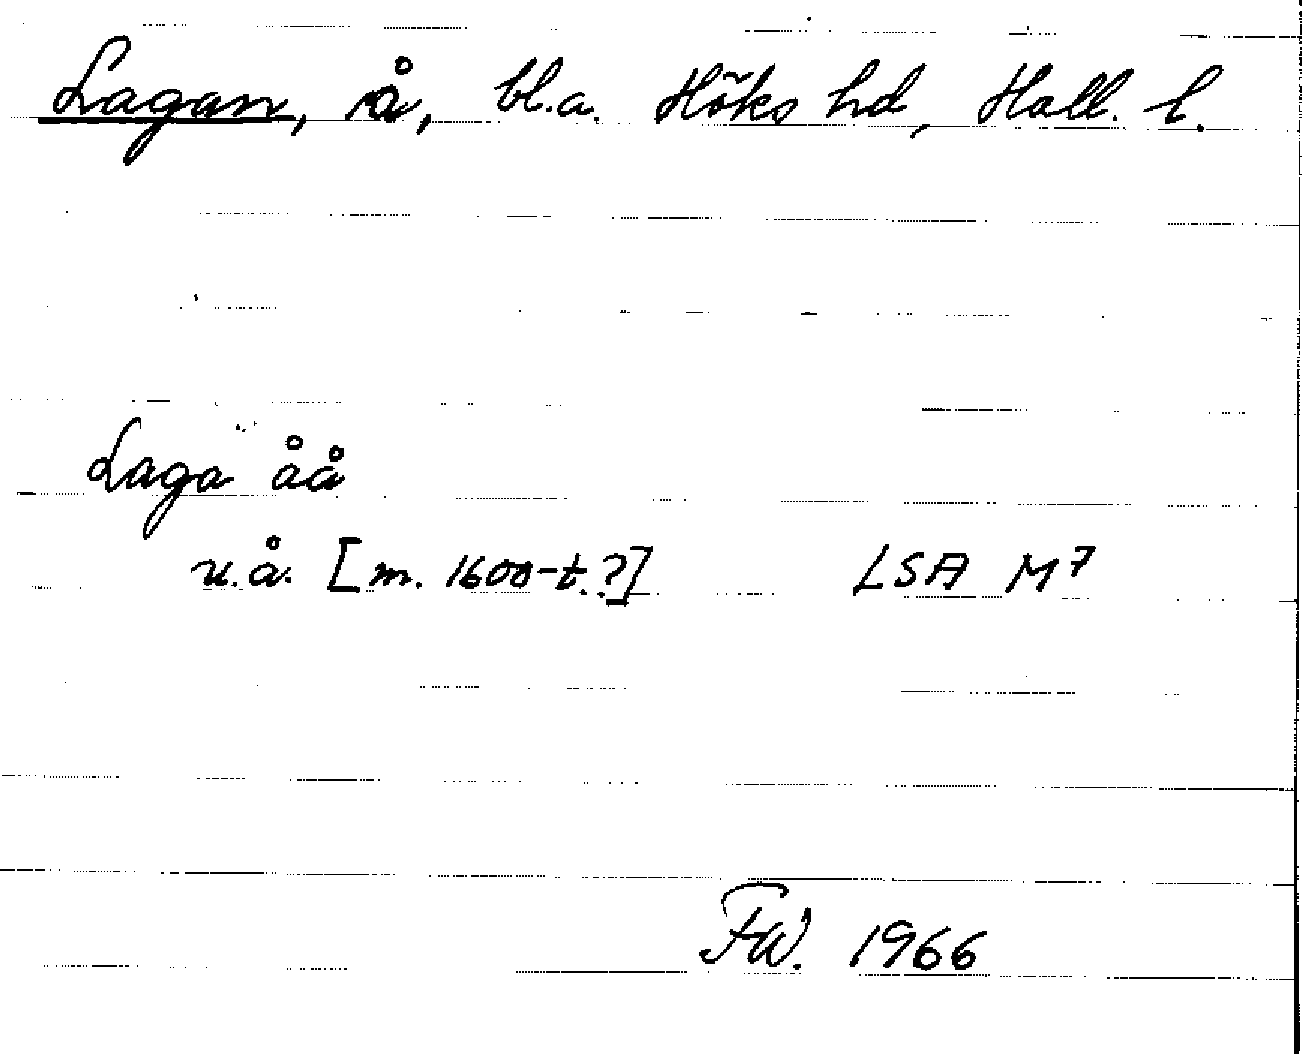 Lagan, å, bl.a. Höks hd, Hall. l.
Laga åå
u.å. [m. 1600-t.?] LSA M7
FW. 1966